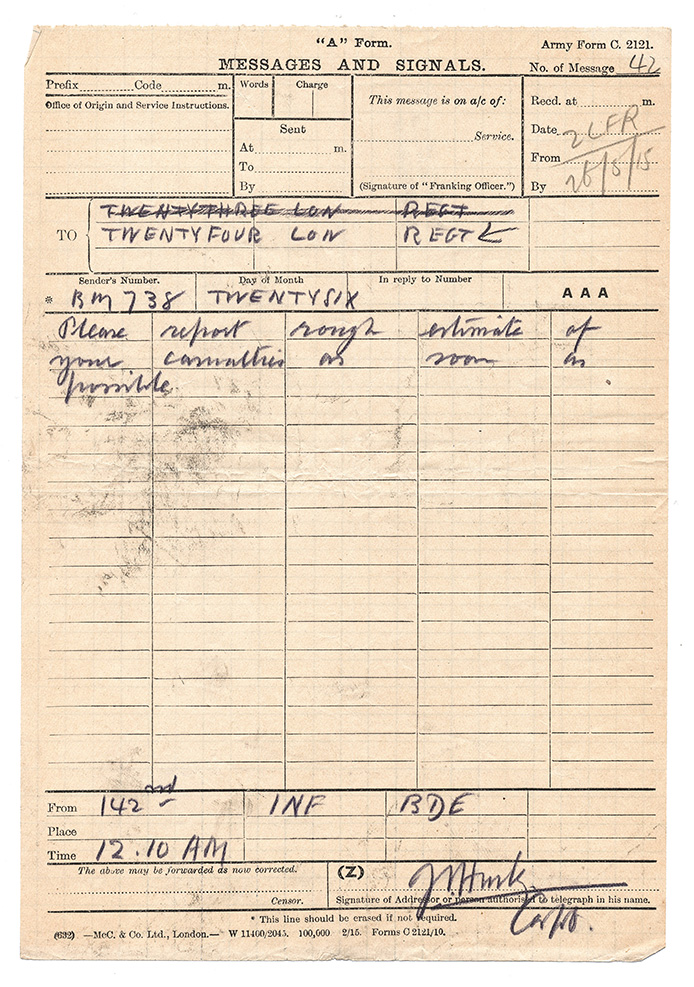 "A" Form.
Army Form C. 2121.
MESSAGES AND SIGNALS.
No. of Message 42
Prefix Code m.
Words Charge
This message is on a/c of:
Recd. at m.
Office of Origin and Service Instructions.
Sent
Service.
Date
2 LFR
At m.
From
To
26/5/15
By
(Signature of "Franking Officer.")
By
TWENTYTHREE LON REGT
TO TWENTYFOUR LON REGT
Sender's Number. Day of Month In reply to Number
* BM 738 TWENTYSIX AAA
Please report rough estimate of
your casualties as soon as
possible
From 142nd INF BDE
Place
Time 12.10 AM
The above may be forwarded as now corrected.
(Z)
Censor.
Signature of Addressor or person authorised to telegraph in his name.
Capt.
* This line should be erased if not required.
(632) —McC. & Co. Ltd., London.— W 11400/2045. 100,000 2/15. Forms C2121/10.